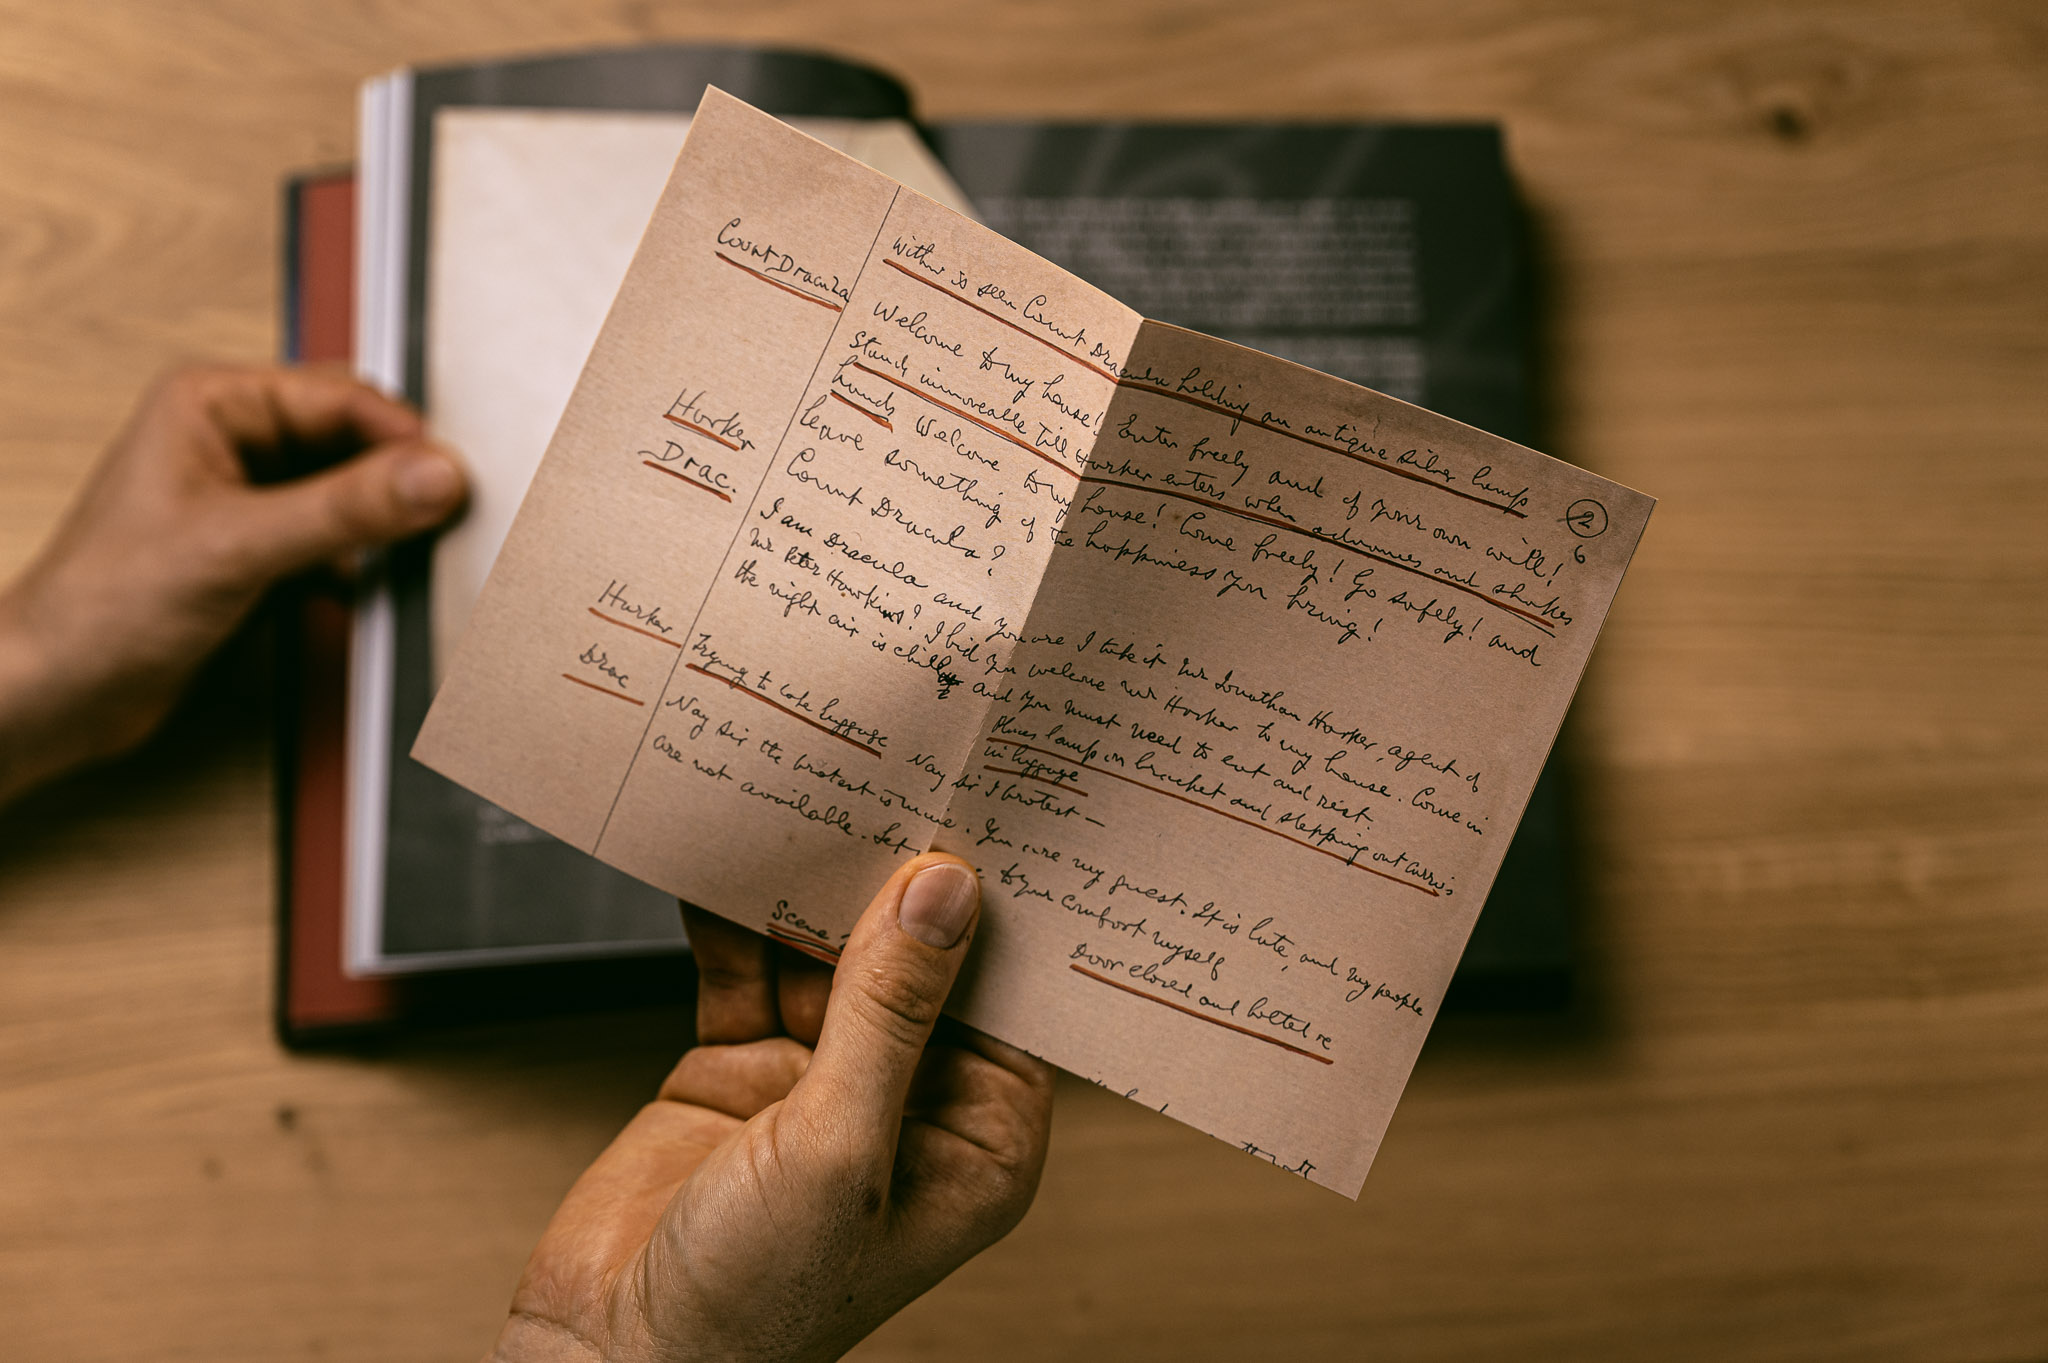 within is seen Count Dracula holding an antique silver lamp
2
6
Count Dracula
Welcome to my house! Enter freely and of your own will!
Stands immoveable till Harker enters when advances and shakes
hands Welcome to my house! Come freely! Go safely! and
leave something of the happiness you bring!
Harker Count Dracula?
Drac. I am Dracula and you are I take it Mr Jonathan Harker, agent of
Mr Peter Hawkins? I bid you welcome Mr Harker to my house. Come in
the night air is chill and you must need to eat and rest.
Places lamp on bracket and stepping out carries
in luggage
Harker Trying to take luggage Nay sir I protest —
Drac Nay sir the protest is mine. You are my guest. It is late, and my people
are not available. Let to your comfort myself
Door closed and bolted re
Scene